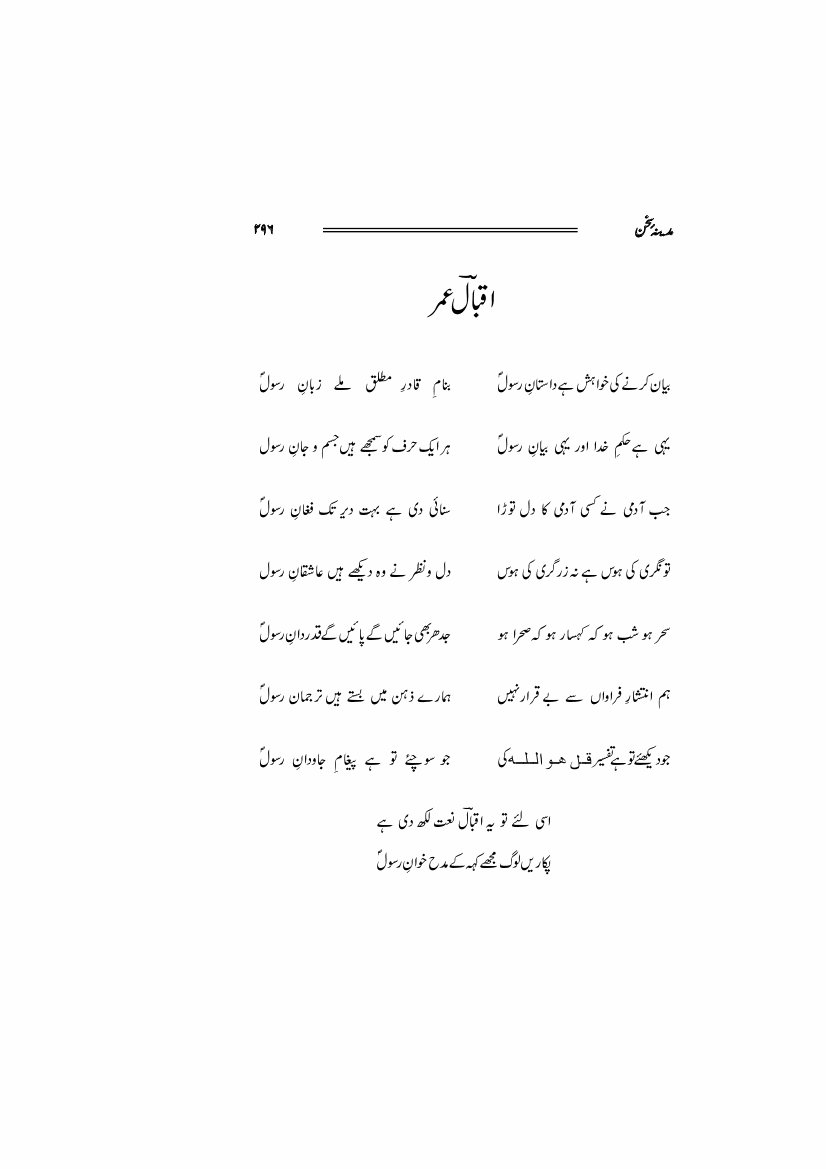 مدینہ سخن ۲۹۶
اقبالؔ عمر
بیان کرنے کی خواہش ہے داستانِ رسولؐ بنامِ قادرِ مطلق ملے زبانِ رسولؐ
یہی ہے حکمِ خدا اور یہی بیانِ رسولؐ ہر ایک حرف کو سمجھے ہیں جسم و جانِ رسول
جب آدمی نے کسی آدمی کا دل توڑا سنائی دی ہے بہت دیر تک فغانِ رسولؐ
تونگری کی ہوس ہے نہ زرگری کی ہوس دل ونظر نے وہ دیکھے ہیں عاشقانِ رسول
سحر ہو شب ہو کہ کہسار ہو کہ صحرا ہو جدھر بھی جائیں گے پائیں گے قدردانِ رسولؐ
ہم انتشارِ فراواں سے بے قرار نہیں ہمارے ذہن میں بستے ہیں ترجمان رسولؐ
جو دیکھئے تو ہے تفسیر قل ھو اللہ کی جو سوچئے تو ہے پیغامِ جاودانِ رسولؐ
اسی لئے تو یہ اقبالؔ نعت لکھ دی ہے
پکاریں لوگ مجھے کہہ کے مدح خوانِ رسولؐ